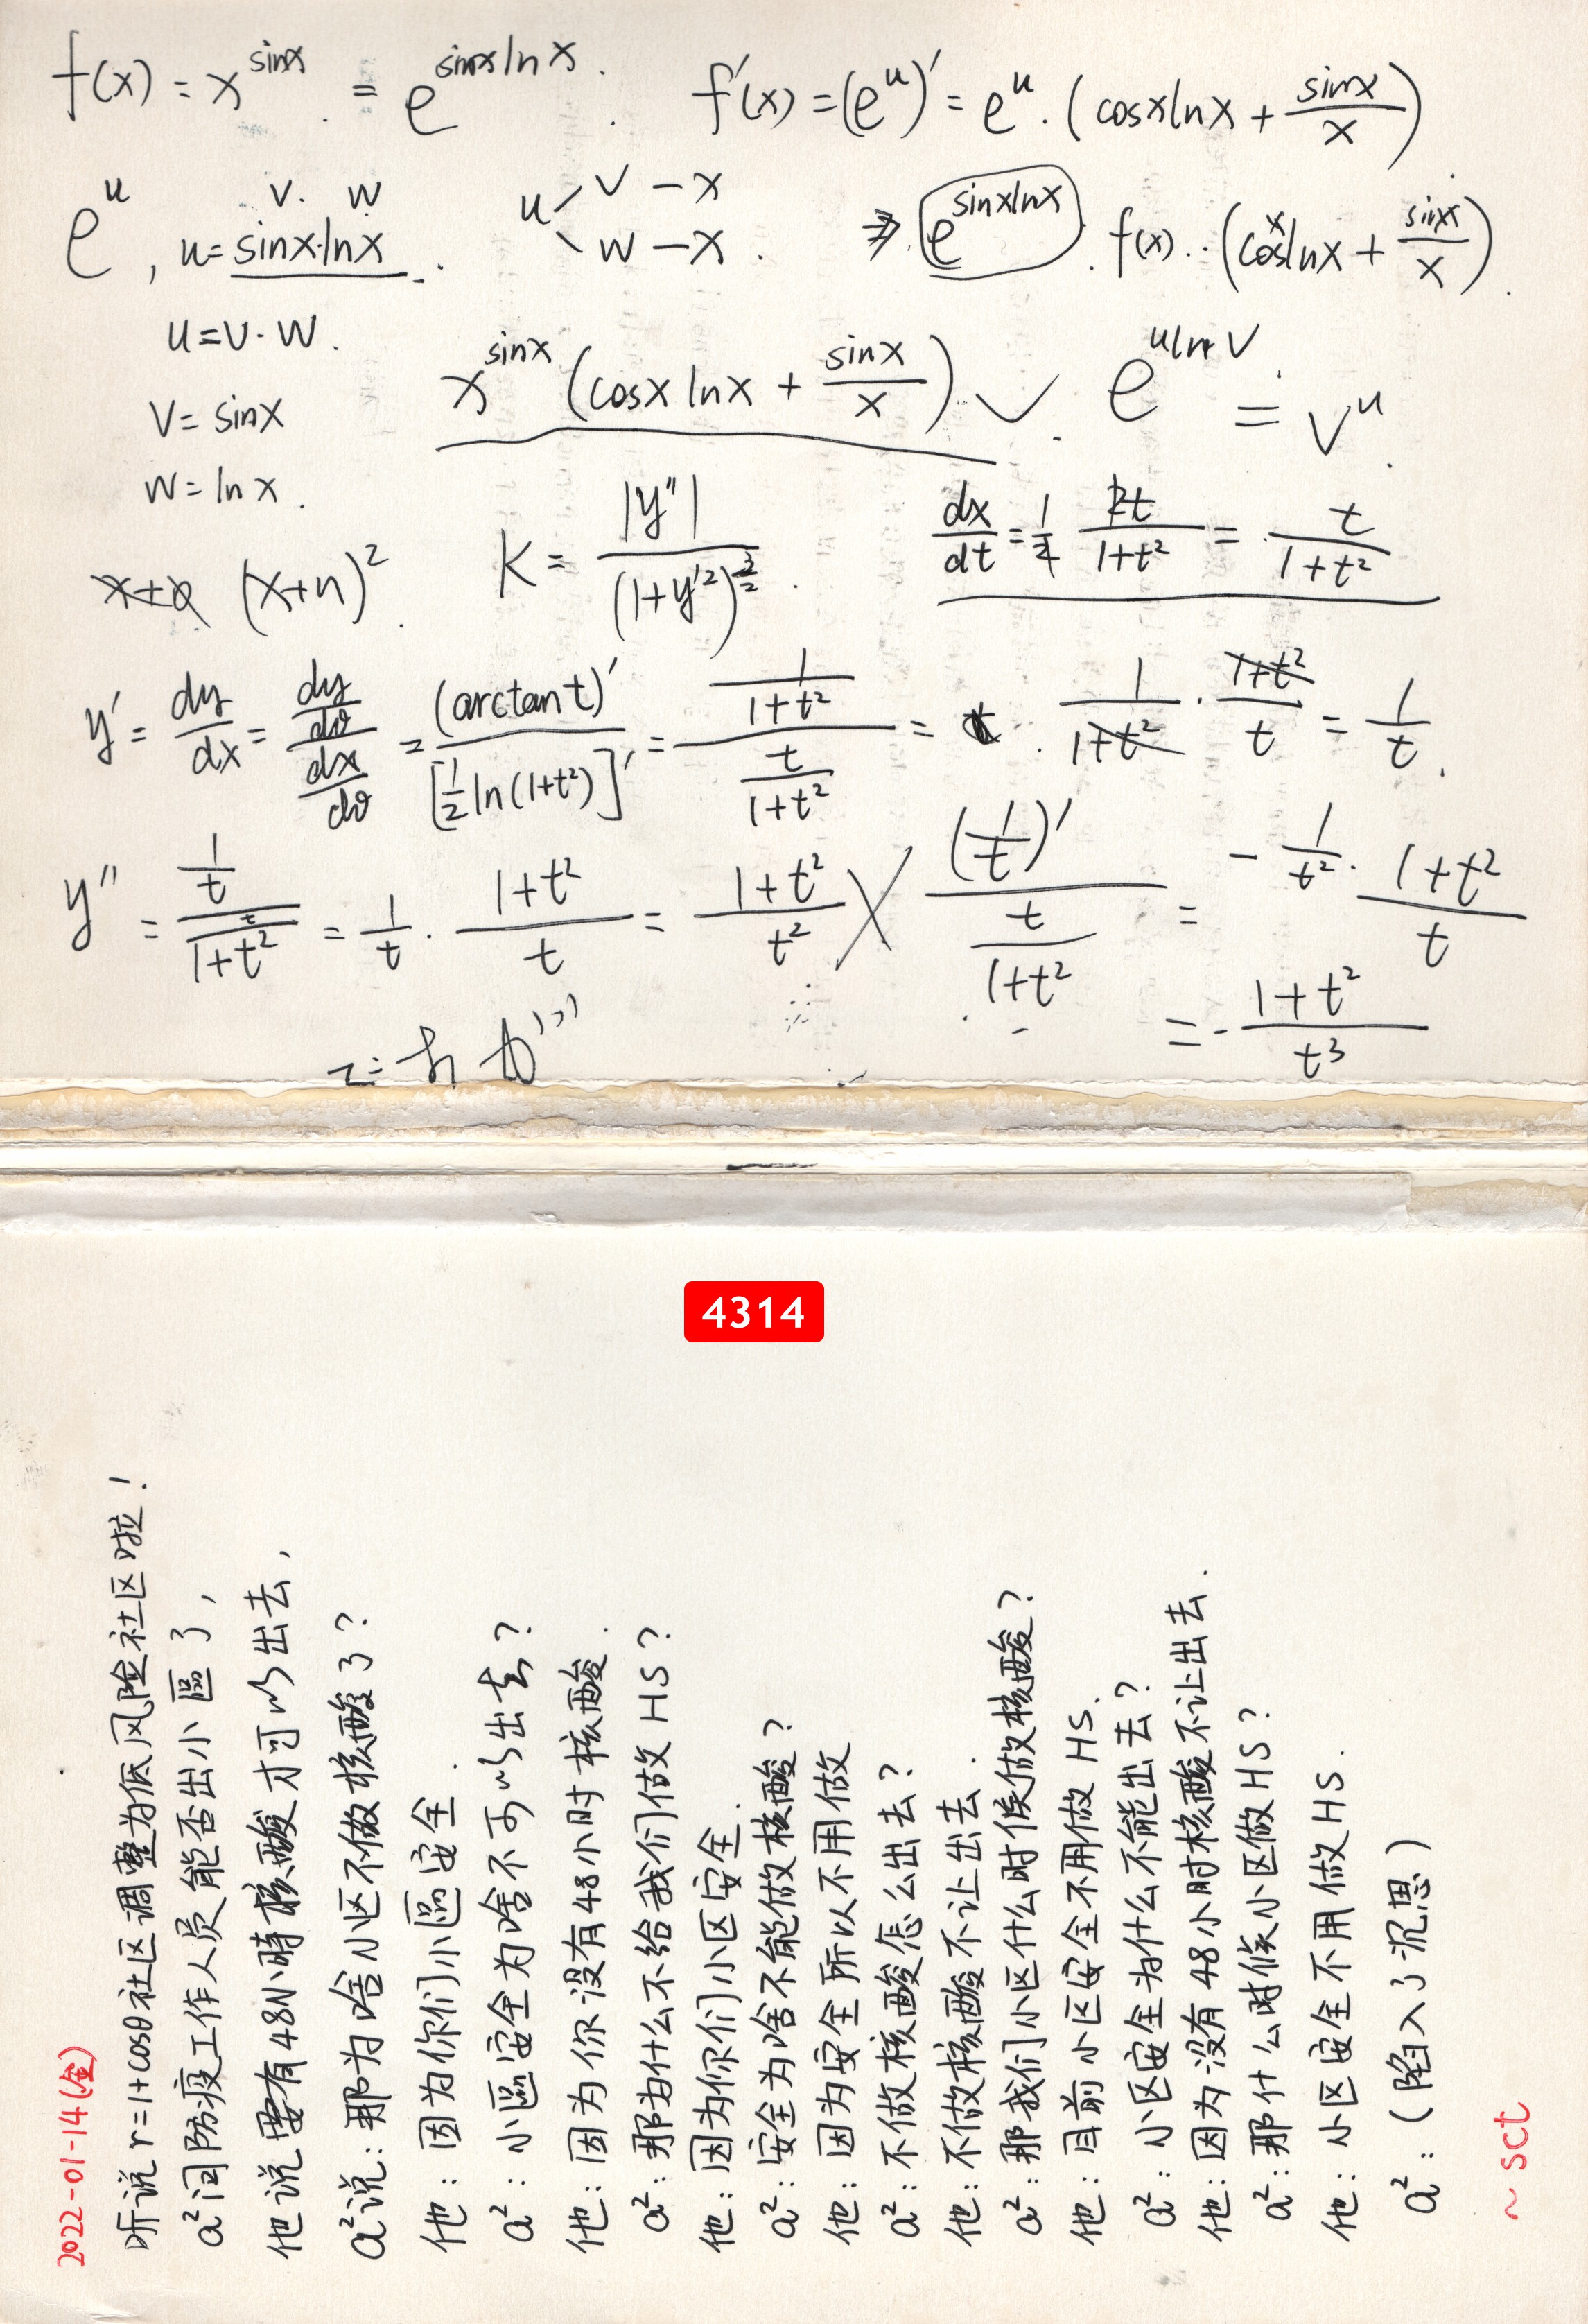 f(x) = x^sinx = e^sinxlnx. f'(x) = (e^u)' = e^u · (cosxlnx + sinx/x)
e^u, u = sinx·lnx v. w u < v - x w - x . ⇒ e^sinxlnx . f(x) ·(cosxlnx + sinx/x).
u = v·w.
v = sinx
w = lnx.
x^sinx (cosx lnx + sinx/x) ✓. e^ulnv = v^u.
(x+n)^2. K = |y''|/(1+y'^2)^3/2. dx/dt = 1/2 2t/1+t^2 = t/1+t^2
y' = dy/dx = dy/dθ / dx/dθ = (arctant)' / [1/2 ln(1+t^2)]' = 1/1+t^2 / t/1+t^2 = 1/1+t^2 · 1+t^2/t = 1/t.
y'' = 1/t / t/1+t^2 = 1/t · 1+t^2/t = 1+t^2/t^2 ╳ (1/t)' / t/1+t^2 = -1/t^2 · 1+t^2/t
= - 1+t^2/t^3
4314
2022-01-14(金)
听说r=1+cosθ社区调整为低风险社区啦!
a²问防疫工作人员能否出小區了,
他说要有48小時核酸才可以出去,
a²说:那为啥小区不做核酸了?
他:因为你们小區安全.
a²:小區安全为啥不可以出去?
他:因为你没有48小时核酸.
a²:那为什么不给我们做HS?
他:因为你们小区安全.
a²:安全为啥不能做核酸?
他:因为安全所以不用做
a²:不做核酸怎么出去?
他:不做核酸不让出去.
a²:那我们小区什么时候做核酸?
他:目前小区安全不用做HS.
a²:小区安全为什么不能出去?
他:因为没有48小时核酸不让出去.
a²:那什么时候小区做HS?
他:小区安全不用做HS.
a²:(陷入了沉思)
~sct